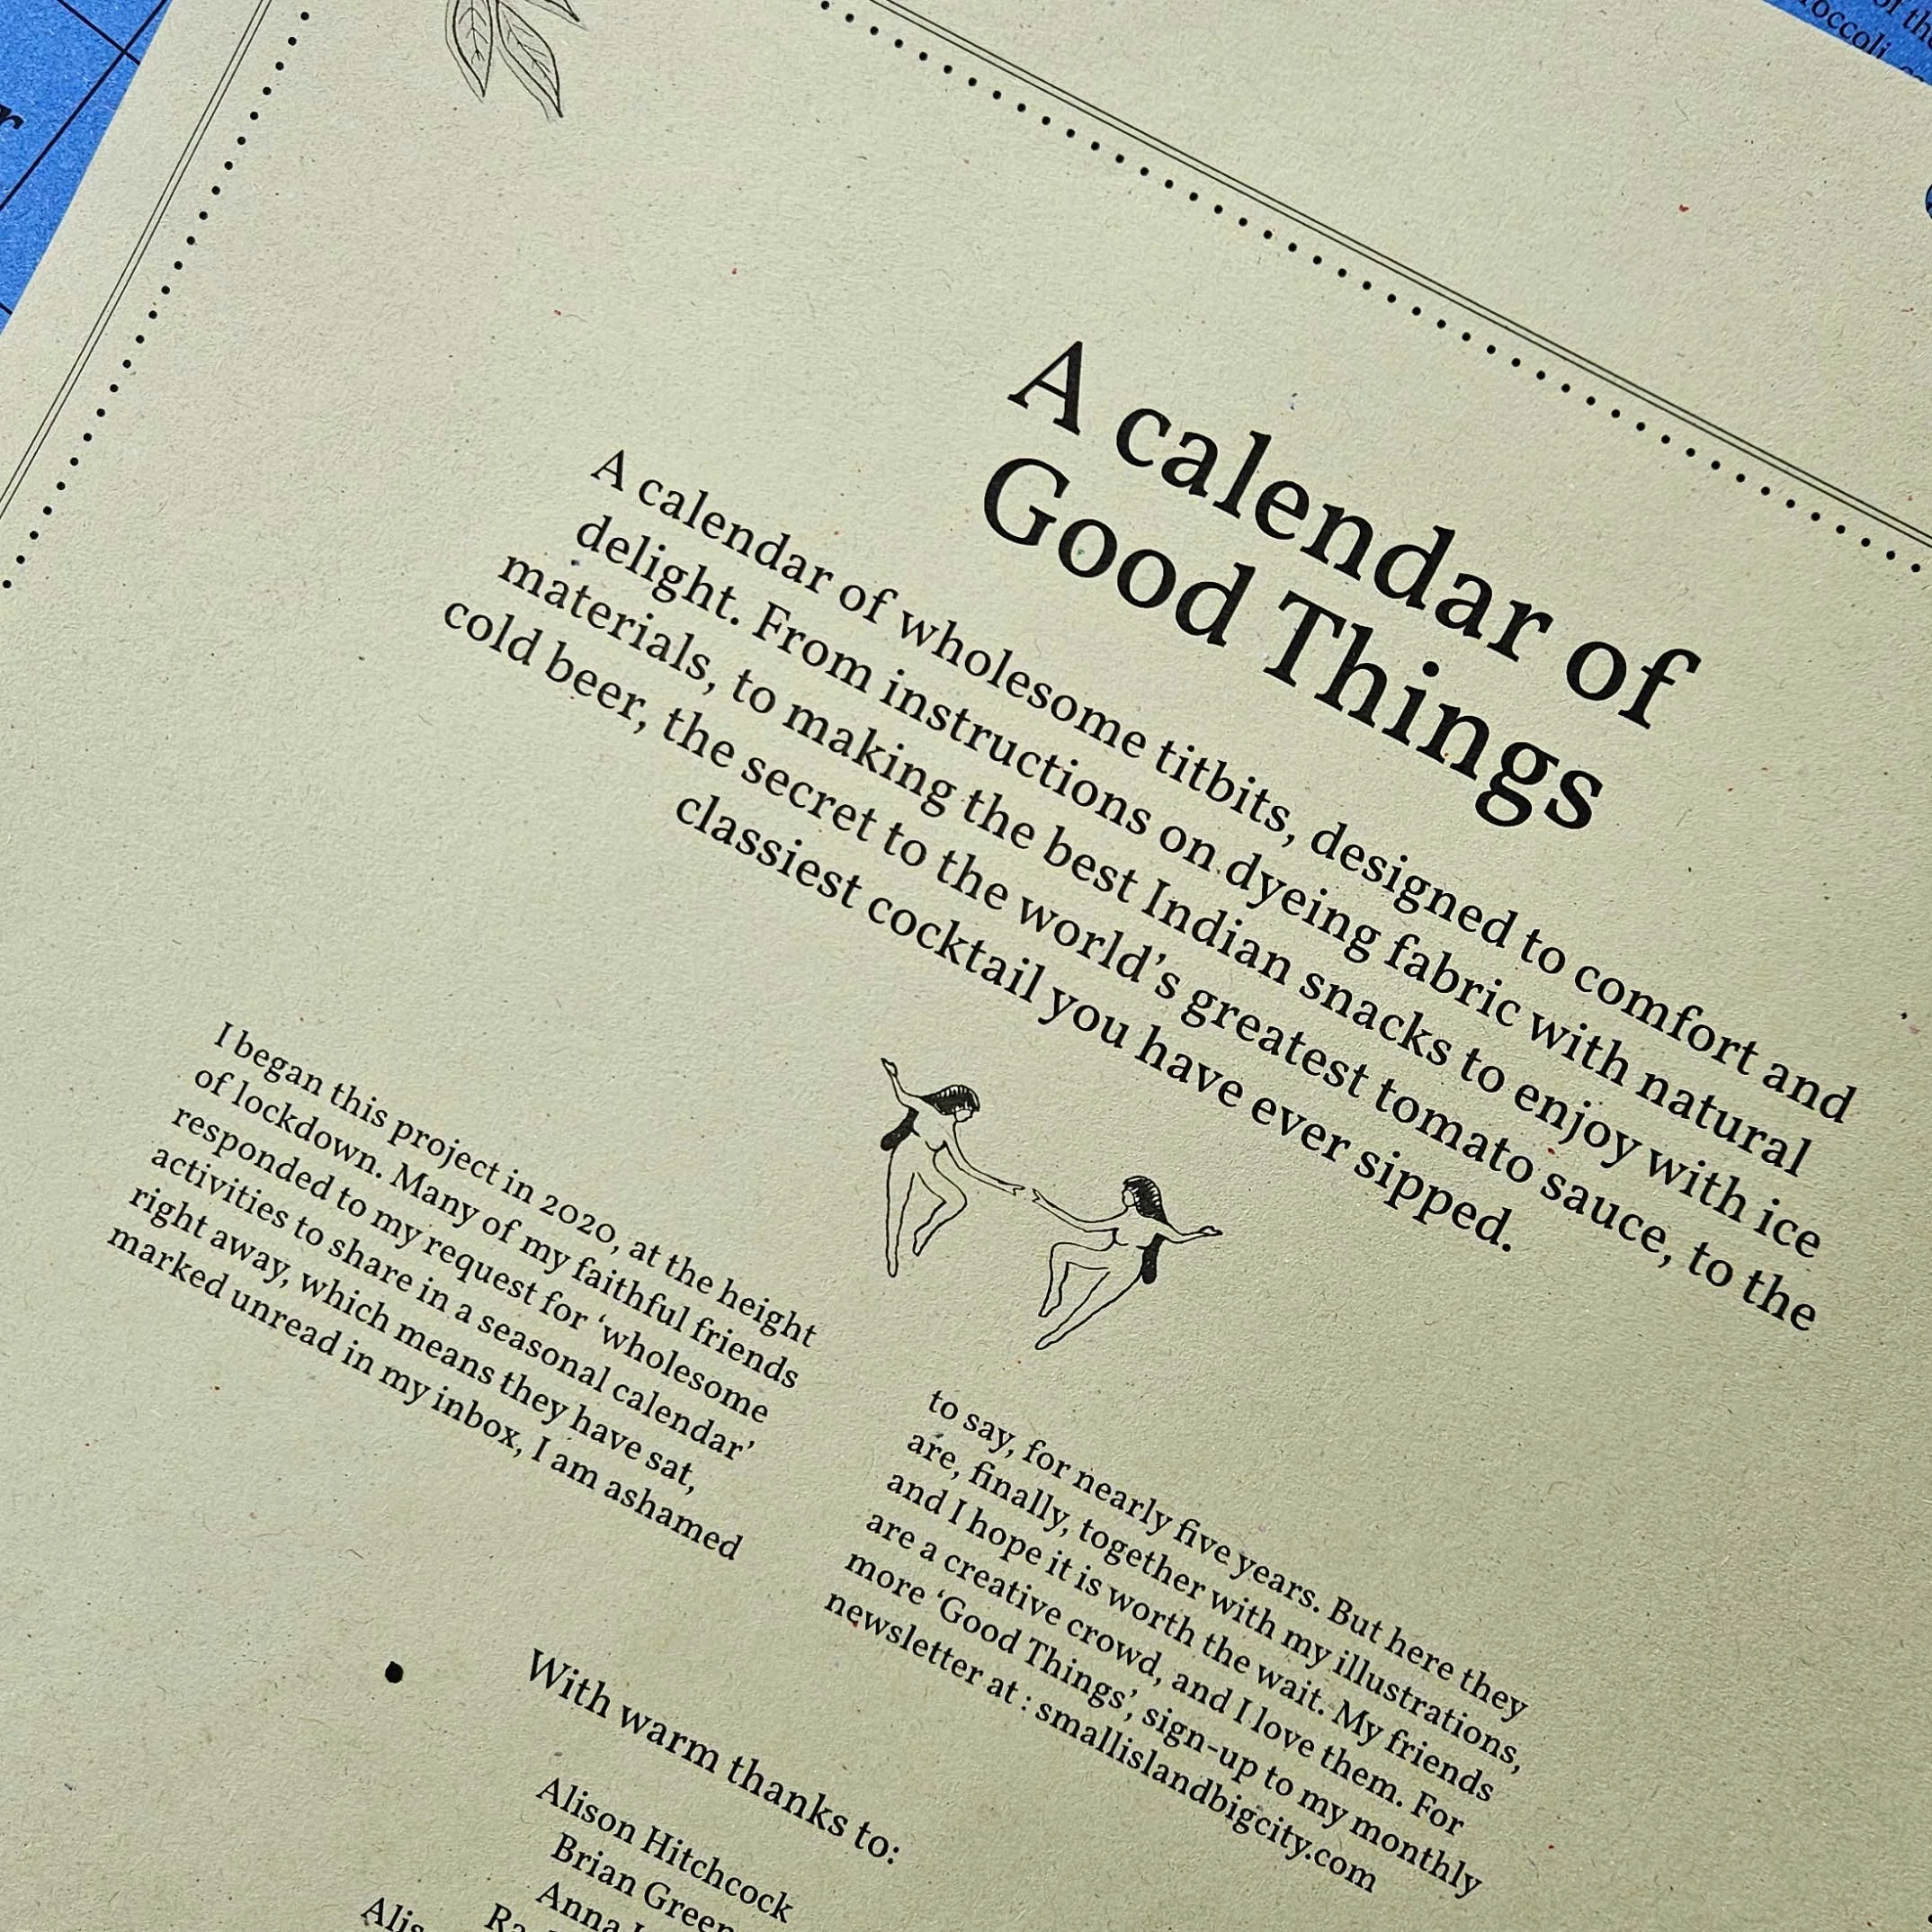 of the
roccoli
r
A calendar of
Good Things
A calendar of wholesome titbits, designed to comfort and
delight. From instructions on dyeing fabric with natural
materials, to making the best Indian snacks to enjoy with ice
cold beer, the secret to the world’s greatest tomato sauce, to the
classiest cocktail you have ever sipped.
I began this project in 2020, at the height
of lockdown. Many of my faithful friends
responded to my request for ‘wholesome
activities to share in a seasonal calendar’
right away, which means they have sat,
marked unread in my inbox, I am ashamed
to say, for nearly five years. But here they
are, finally, together with my illustrations,
and I hope it is worth the wait. My friends
are a creative crowd, and I love them. For
more ‘Good Things’, sign-up to my monthly
newsletter at : smallislandbigcity.com
With warm thanks to:
Alison Hitchcock
Brian Green
Anna